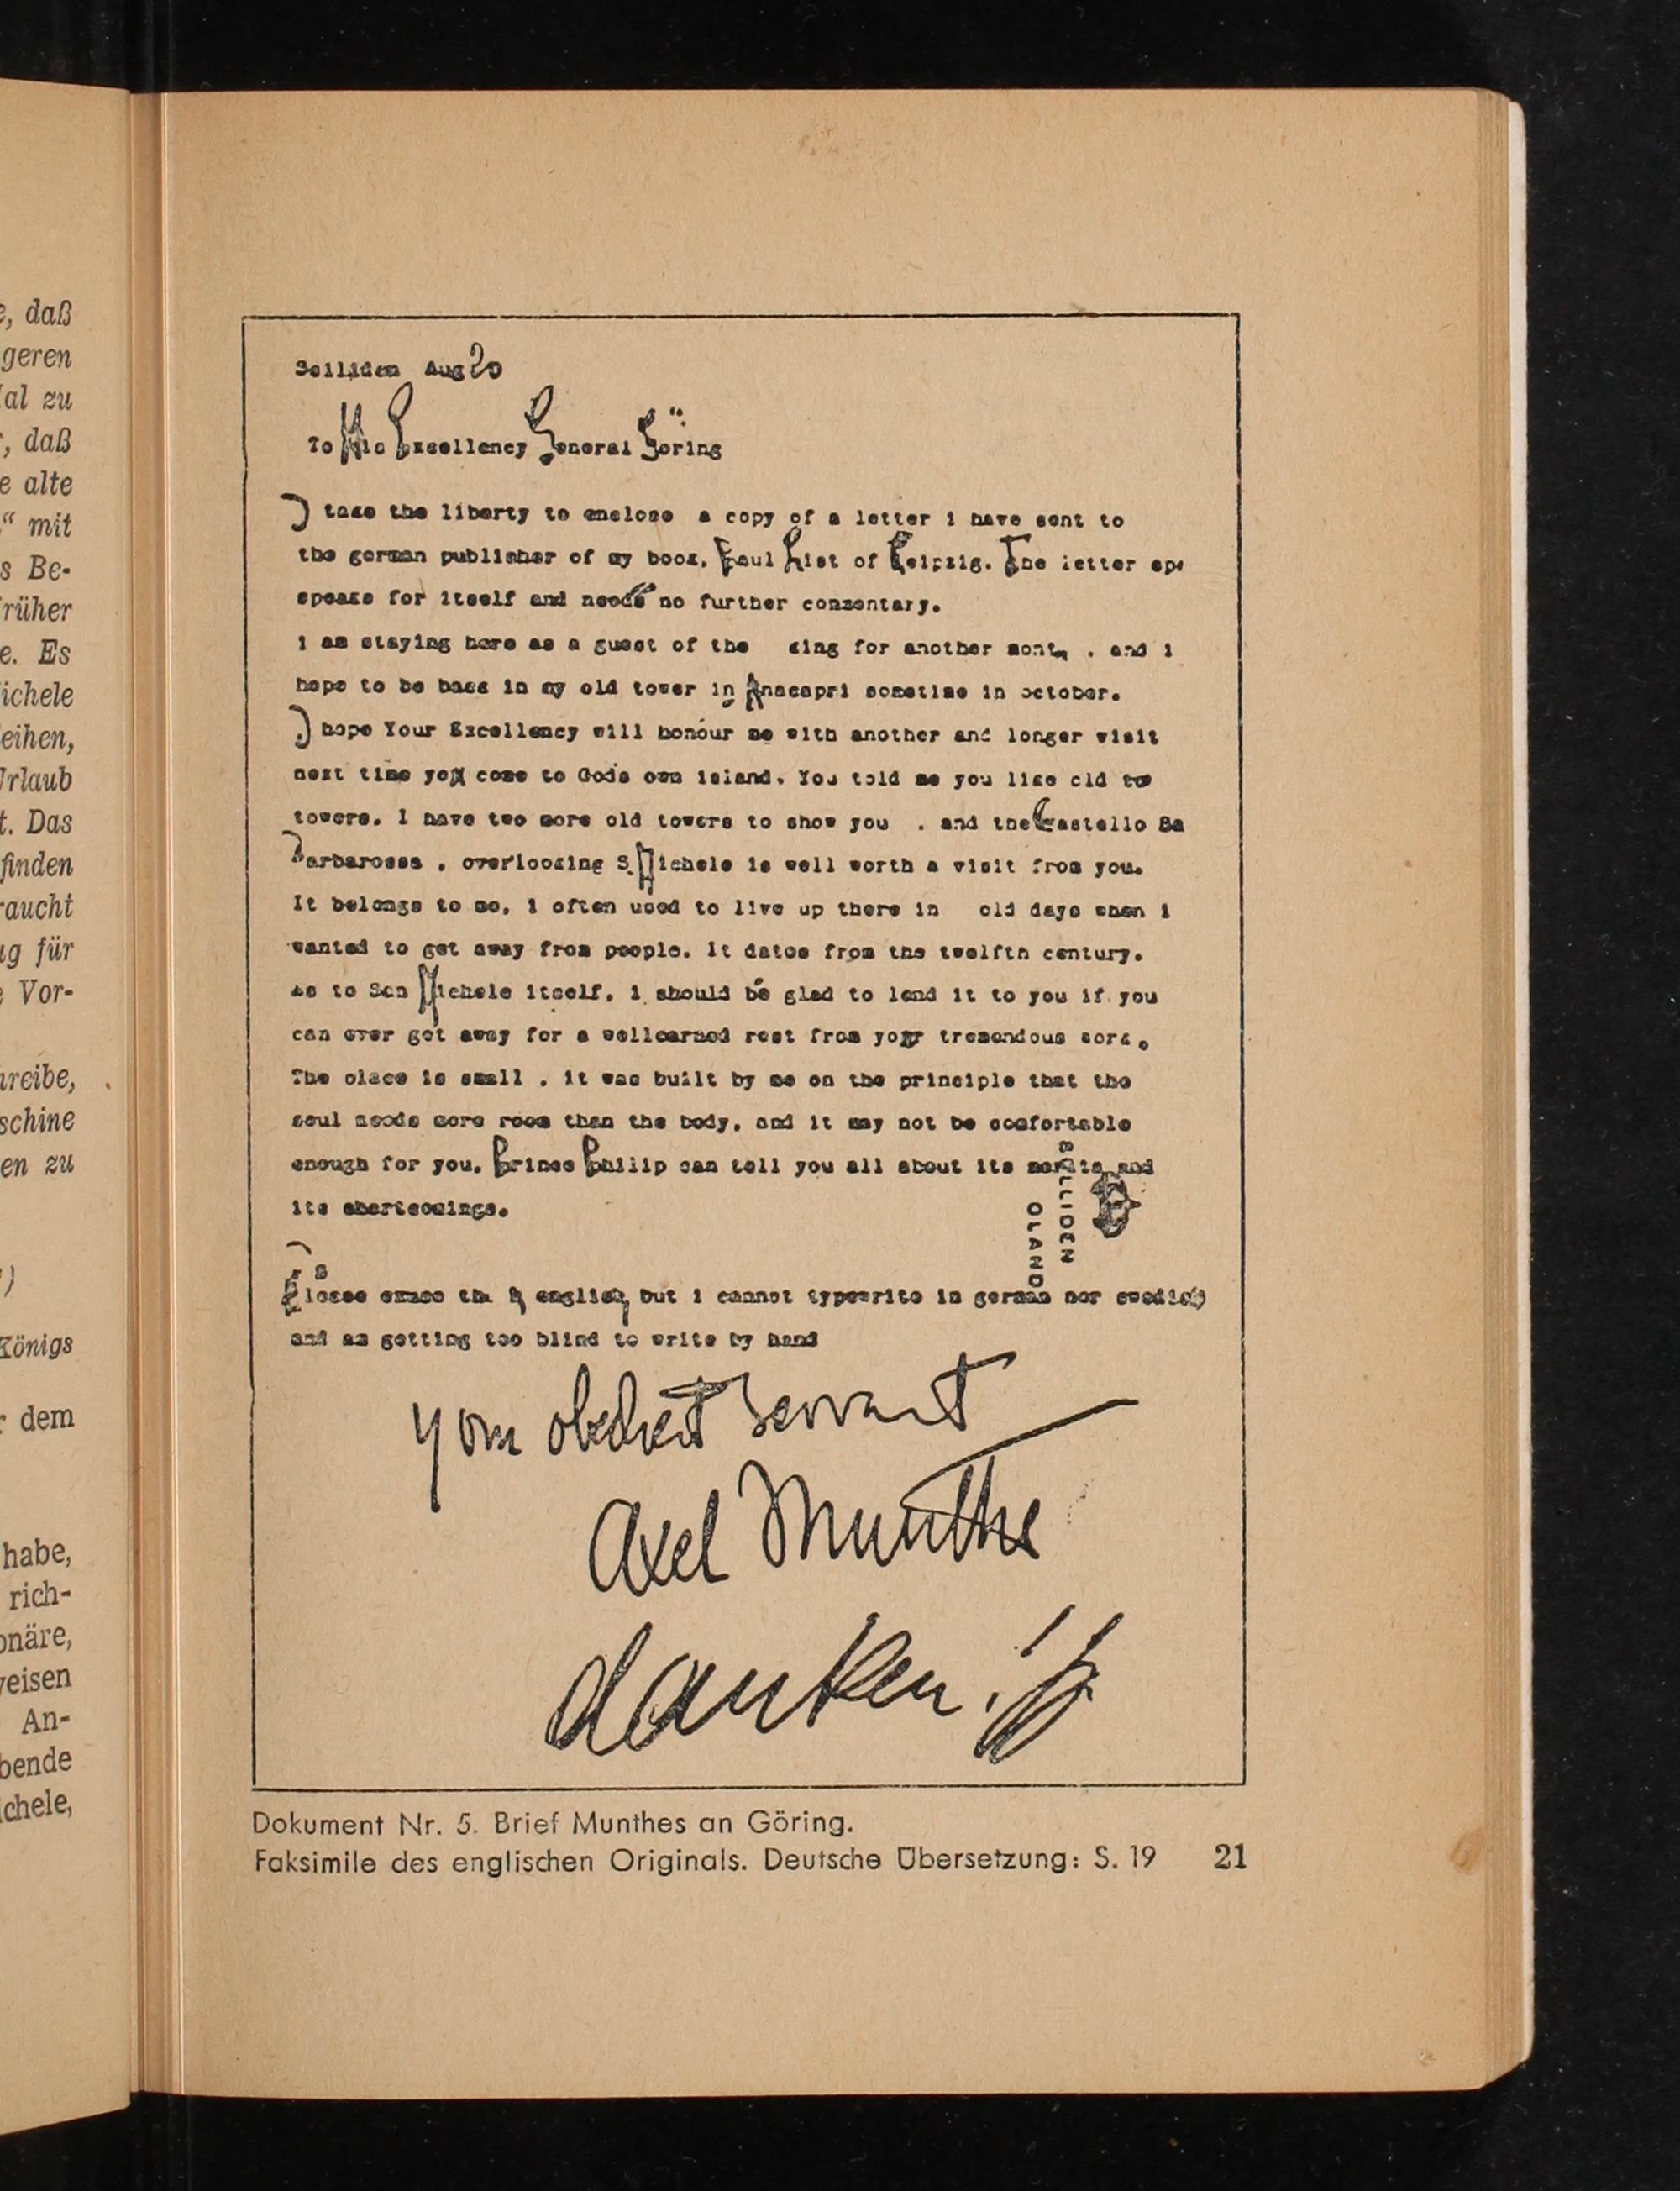 e, daß
geren
al zu
, daß
e alte
“ mit
s Be-
rüher
e. Es
ichele
eihen,
Urlaub
t. Das
finden
raucht
ug für
e Vor-
reibe,
schine
en zu
)
Königs
r dem
habe,
rich-
onäre,
weisen
An-
bende
ichele,
Solliden Aug 20
To His Excellency General Göring
I take the liberty to enclose a copy of a letter i have sent to
the german publisher of my book, Paul List of Leipzig. The letter spe
speaks for itself and needs no further commentary.
i am staying here as a guest of the king for another month . and i
hope to be back in my old tower in Anacapri sometime in october.
I hope Your Excellency will honour me with another and longer visit
next time you come to Gods own island. You told me you like old to
towers. I have two more old towers to show you . and the Castello Ba
Barbarossa . overlooking S. Michele is well worth a visit from you.
It belongs to me. i often used to live up there in old days when i
wanted to get away from people. It dates from the twelfth century.
As to San Michele itself, i should be glad to lend it to you if you
can ever get away for a wellearned rest from your tremendous work.
The olace is small . it was built by me on the principle that the
soul needs more room than the body, and it may not be comfortable
enough for you. Prince Philip can tell you all about its merits and
its shortcomings.
SOLLIDEN
OLAND
Please excuse english but i cannot typewrite in german nor swedish
and am getting too blind to write by hand
your obedient servant
Axel Munthe
danken!
Dokument Nr. 5. Brief Munthes an Göring.
Faksimile des englischen Originals. Deutsche Übersetzung: S. 19 21